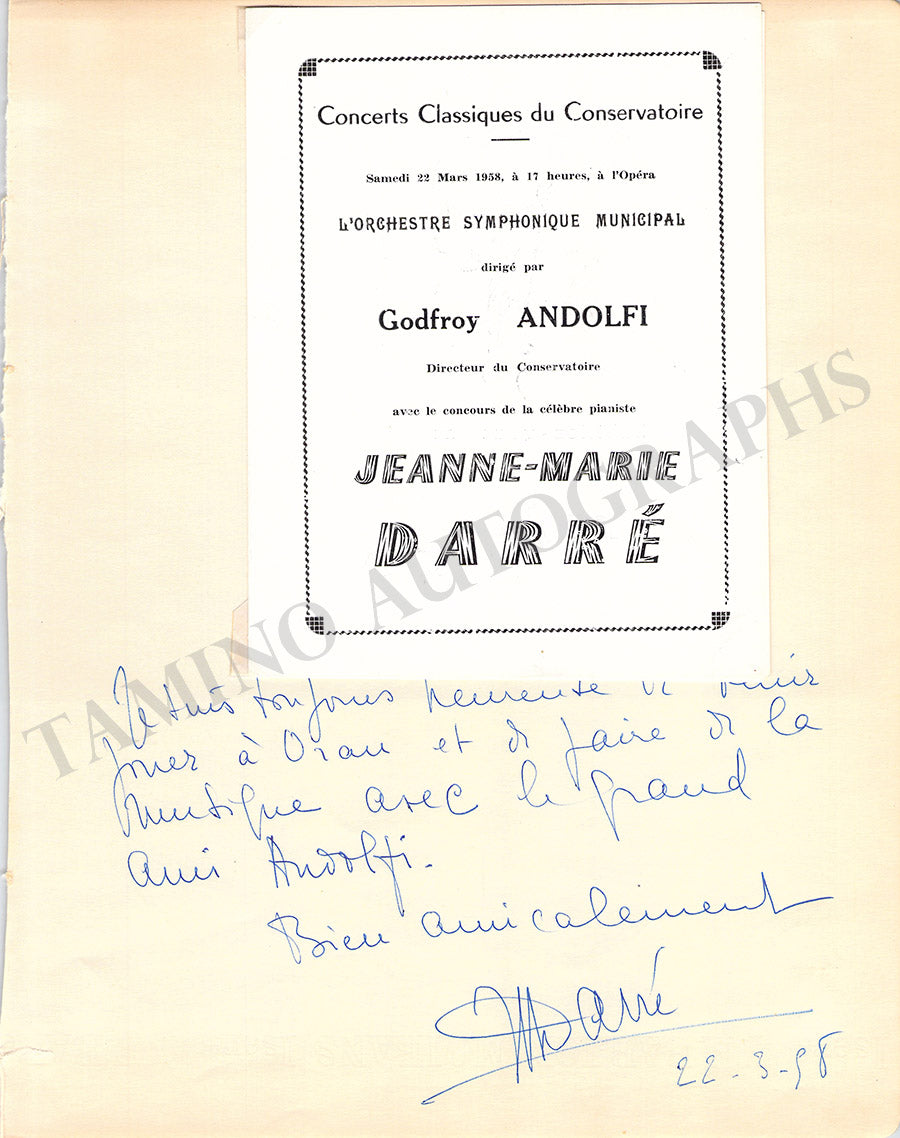 Concerts Classiques du Conservatoire
Samedi 22 Mars 1958, à 17 heures, à l'Opéra
L'ORCHESTRE SYMPHONIQUE MUNICIPAL
dirigé par
Godfroy ANDOLFI
Directeur du Conservatoire
avec le concours de la célèbre pianiste
JEANNE-MARIE
DARRÉ
TAMINO AUTOGRAPHS
Je suis toujours heureuse de venir
jouer à Oran et de faire de la
musique avec le grand
ami Andolfi.
Bien amicalement
JMDarré
22-3-58